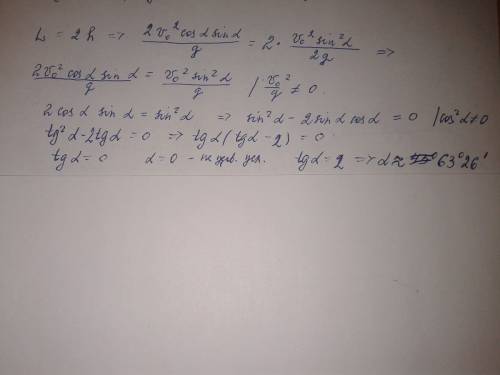 L = 2h => 2v₀²cosα sinα / g = 2 · v₀² sin²α / 2g =>
2v₀² cosα sinα / g = v₀² sin²α / g | : v₀² / g ≠ 0.
2 cosα sinα = sin²α => sin²α - 2sinα cosα = 0 |cos²α≠0
tg²α - 2tgα = 0 => tgα (tgα - 2) = 0
tgα = 0 α = 0 - не удов. усл. tgα = 2 => α ≈ 63°26'